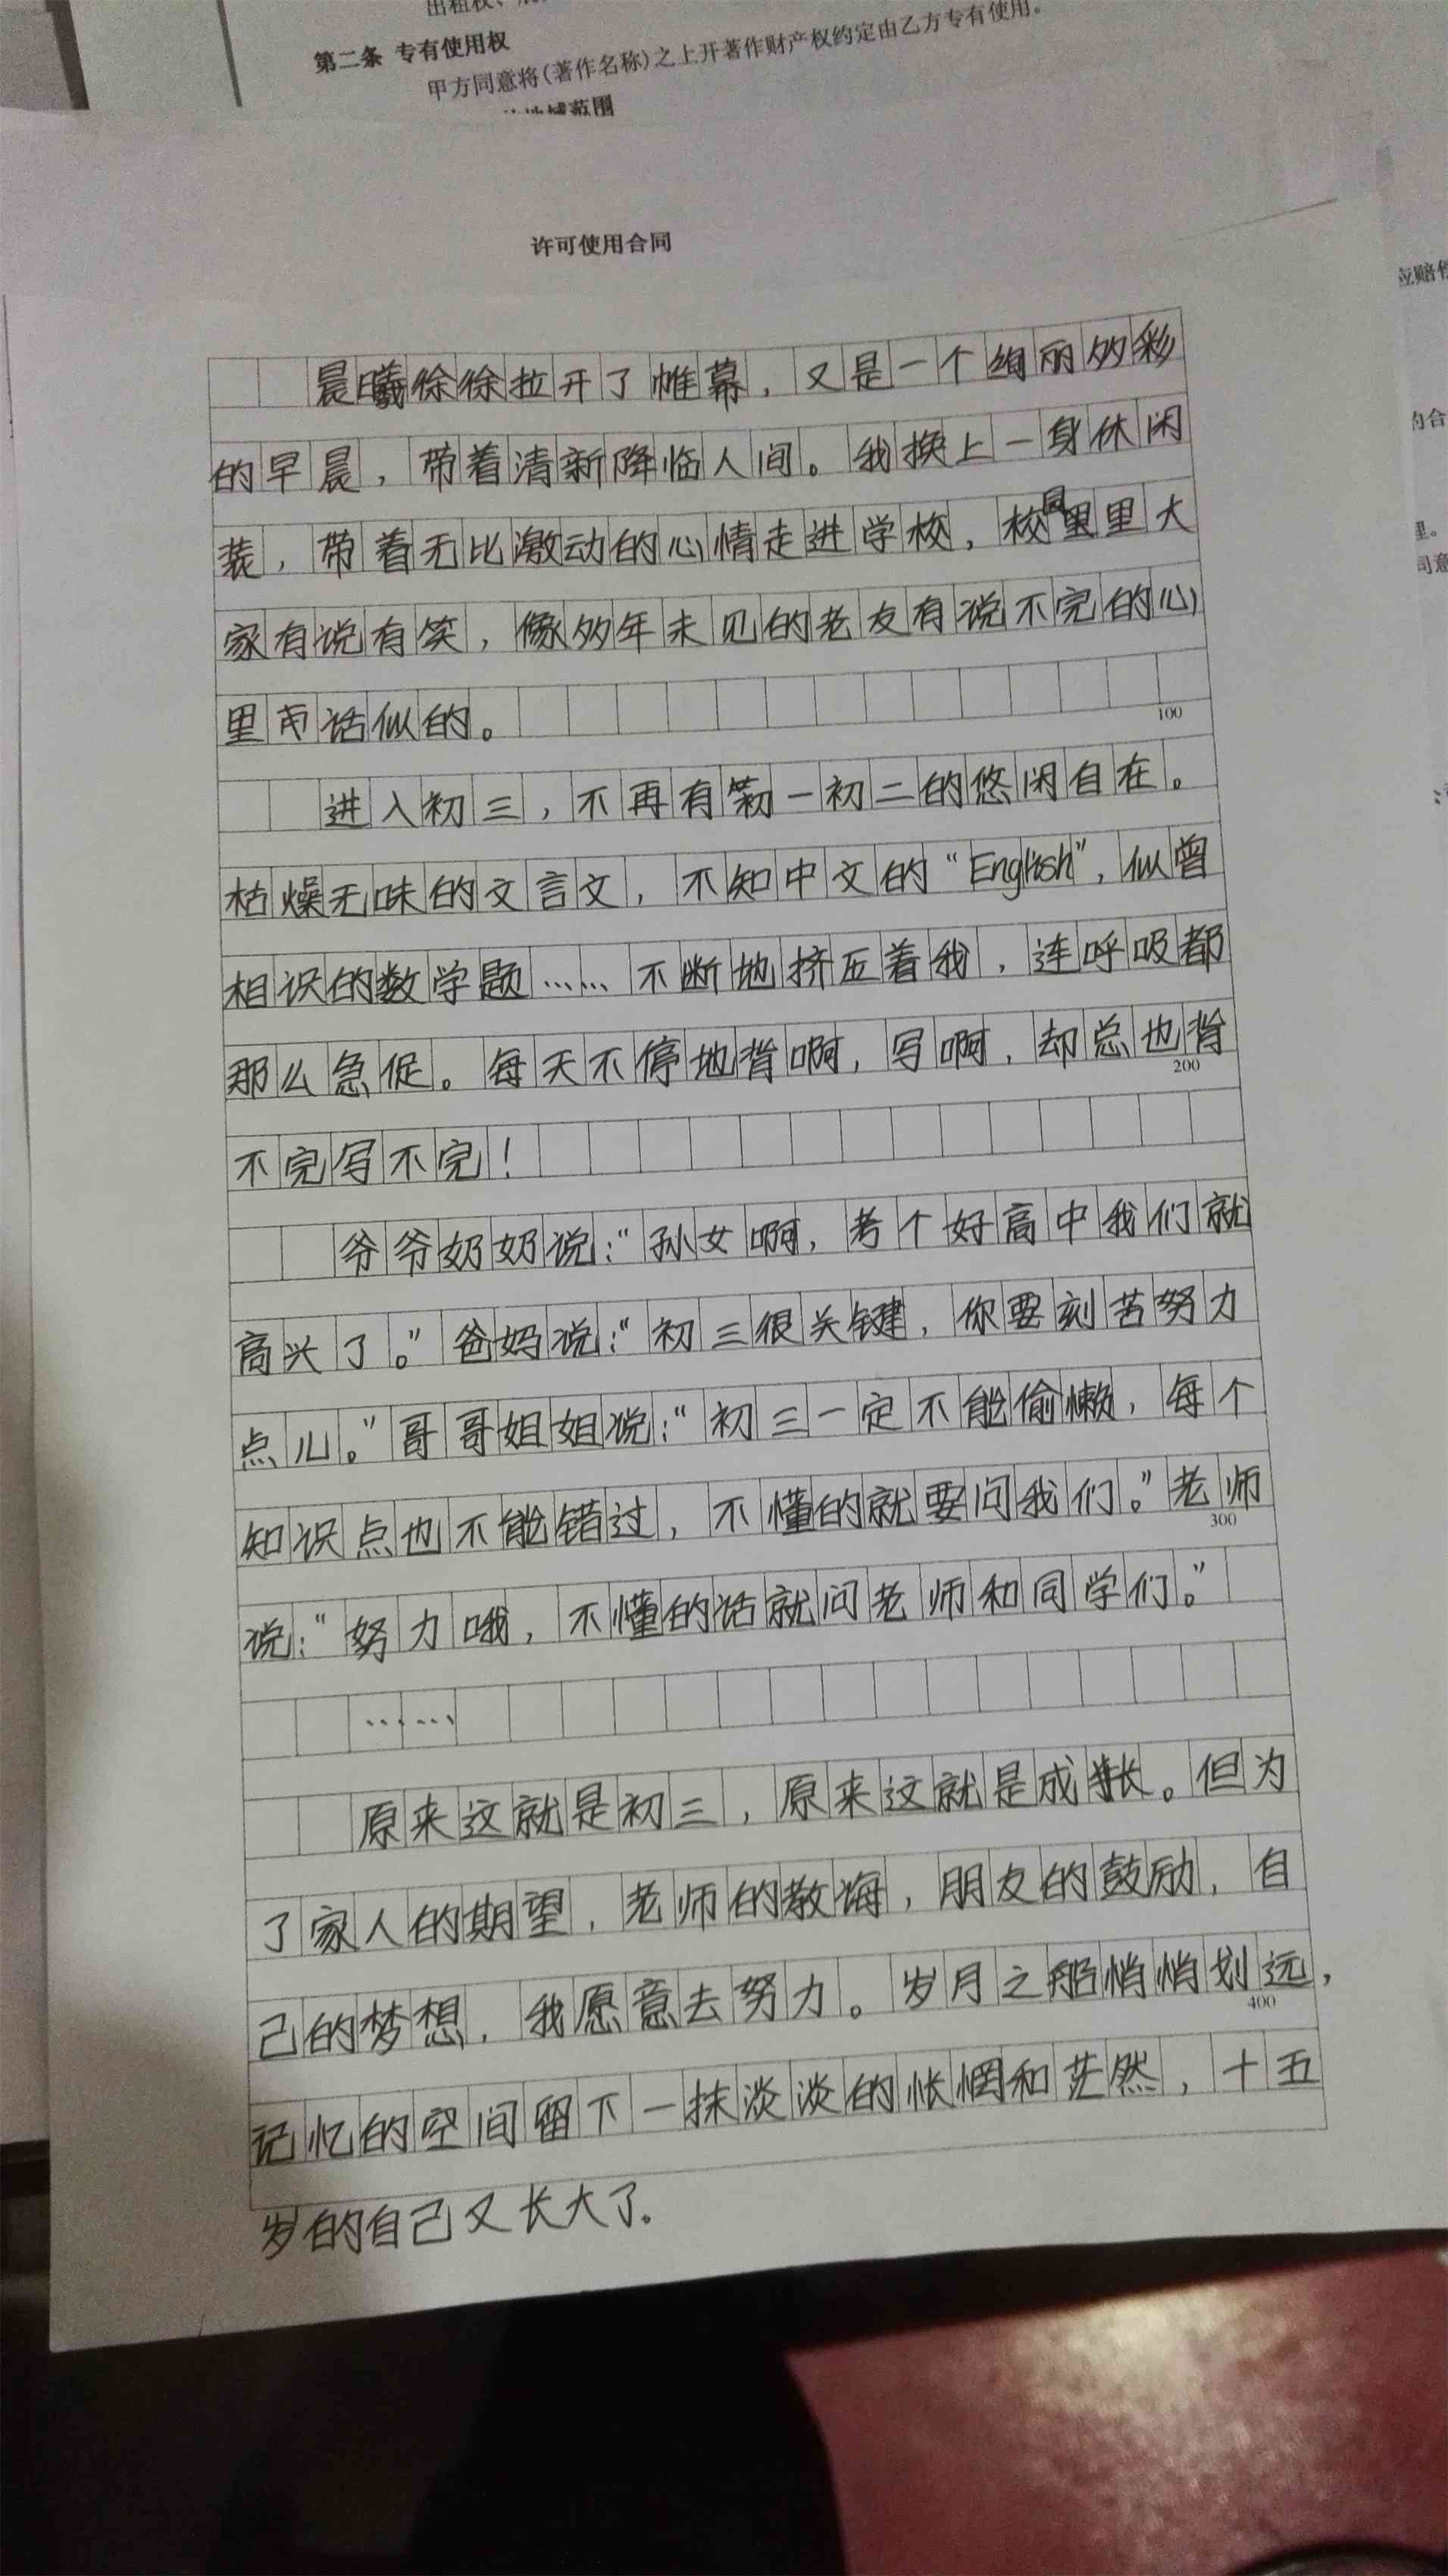 第二条 专有使用权
甲方同意将(著作名称)之上开著作财产权约定由乙方专有使用。
许可使用合同
晨曦徐徐拉开了帷幕，又是一个绚丽多彩
的早晨，带着清新降临人间。我换上一身休闲
装，带着无比激动的心情走进学校，校园里里大
家有说有笑，像多年未见的老友有说不完的心
里话似的。
100
进入初三，不再有初一初二的悠闲自在。
枯燥无味的文言文，不知中文的“English”，似曾
相识的数学题……不断地挤压着我，连呼吸都
那么急促。每天不停地背啊，写啊，却总也背
200
不完写不完！
爷爷奶奶说：“孙女啊，考个好高中我们就
高兴了。”爸妈说：“初三很关键，你要刻苦努力
点儿。”哥哥姐姐说：“初三一定不能偷懒，每个
知识点也不能错过，不懂的就要问我们。”老师
300
说：“努力哦，不懂的话就问老师和同学们。”
……
原来这就是初三，原来这就是成长。但为
了家人的期望，老师的教诲，朋友的鼓励，自
己的梦想，我愿意去努力。岁月之船悄悄划远，
400
记忆的空间留下一抹淡淡的怅惘和茫然，十五
岁的自己又长大了.
应赔
的合
理。
同意